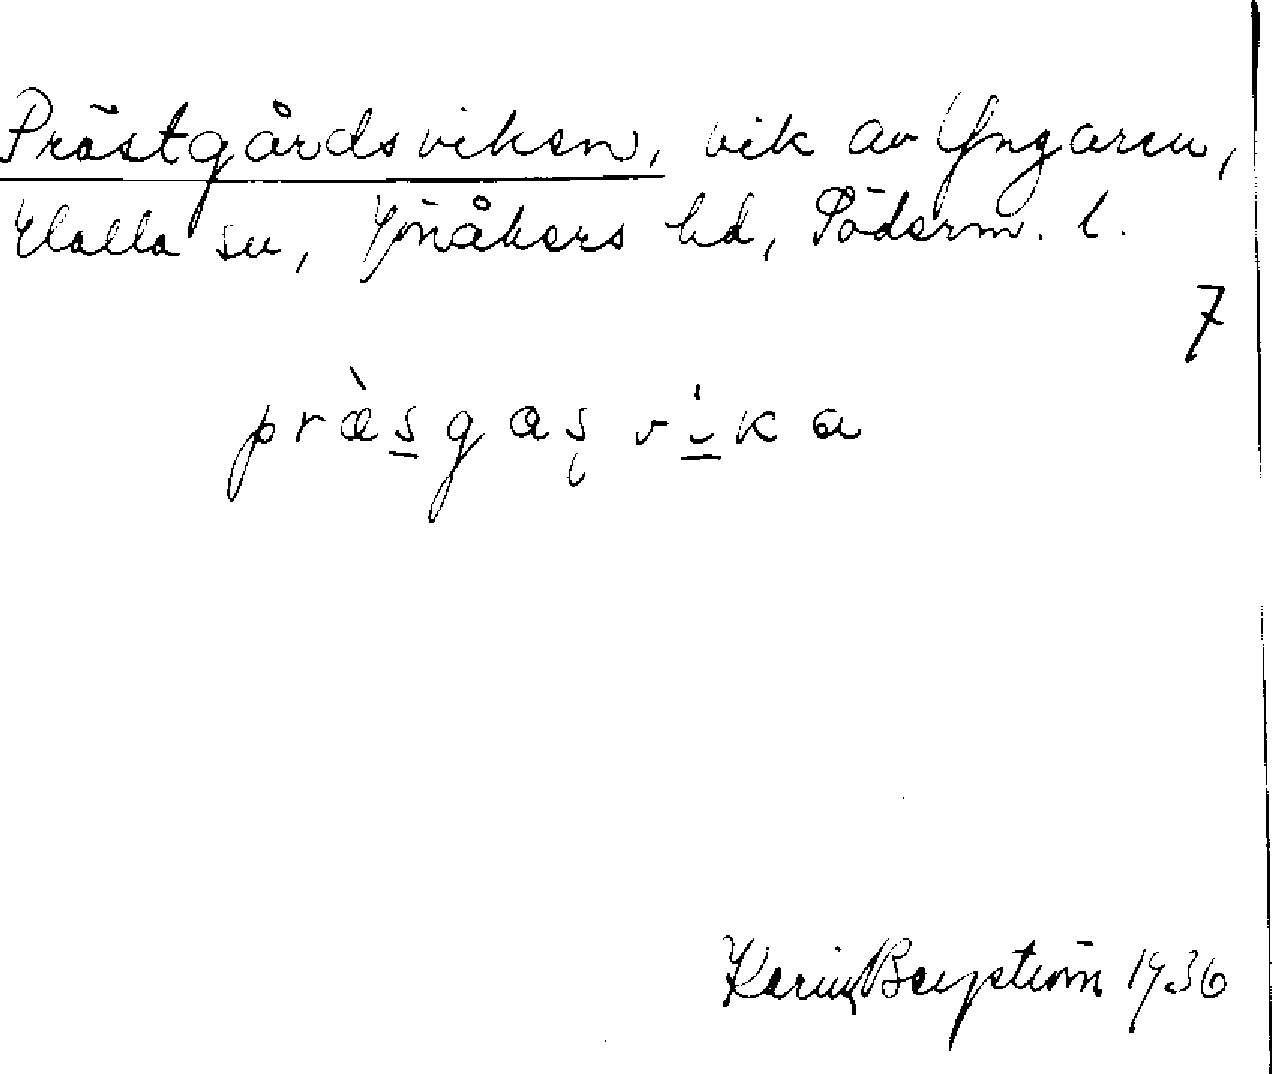 Prästgårdsviken, vik av Yngaren,
Halla sn, Jönåkers hd, Söderm. l.
7
præ̀s̲gaş vi̲ka
Karin Bergström 1936